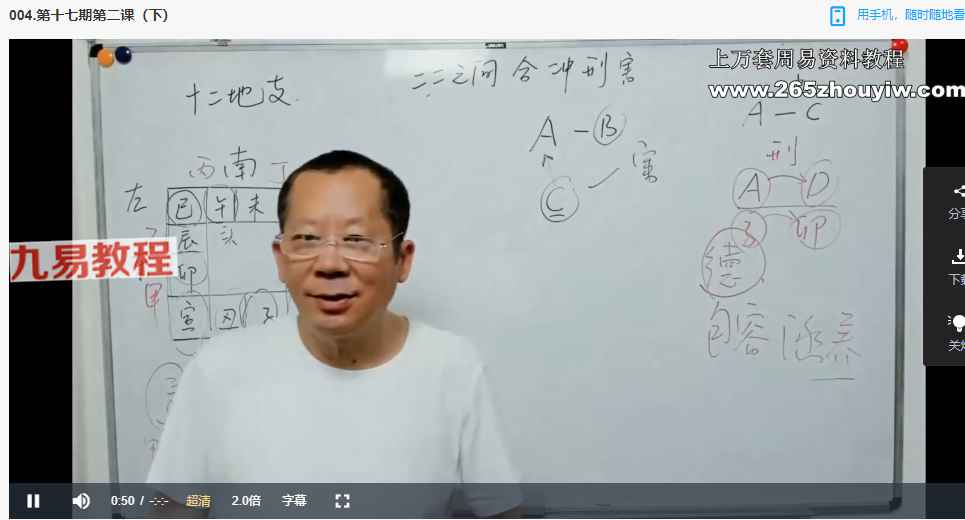 004.第十七期第二课（下）
用手机，随时随地看
上万套周易资料教程
www.265zhouyiw.com
十二地支
二二之间 合 冲 刑 害
A - B
C
害
A - C
刑
A D
子 卯
德
包容 涵养
丙 南 丁
左
巳 午 未
辰 头
卯
甲
寅 丑 子
九易教程
分享
下载
关灯
0:50 / -:-:-
超清
2.0倍
字幕